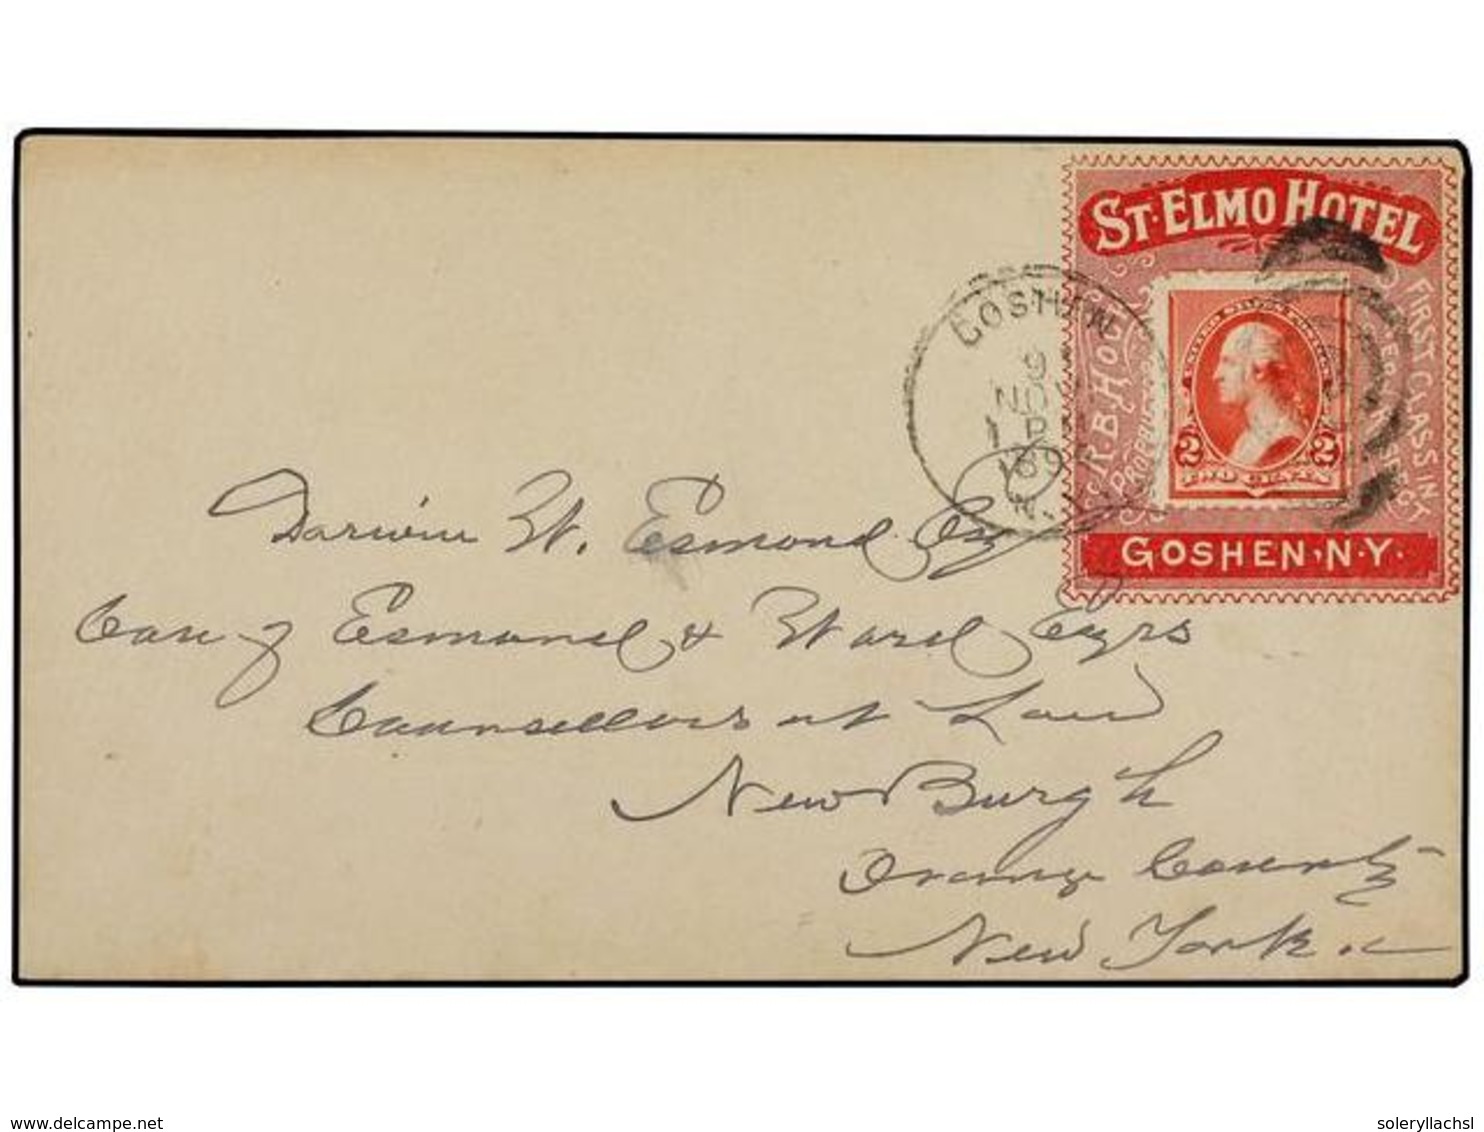 ST. ELMO HOTEL
FIRST CLASS IN
R. B. HOCK
UNITED STATES POSTAGE
2 2
TWO CENTS
GOSHEN, N.Y.
GOSHEN
9
NOV
1 P
N.
Darwin W. Esmond Esq
Care of Esmond & Ward Esqrs
Counsellors at Law
NewBurgh
Orange County
New York.
delcampe.net
soleryllachsl